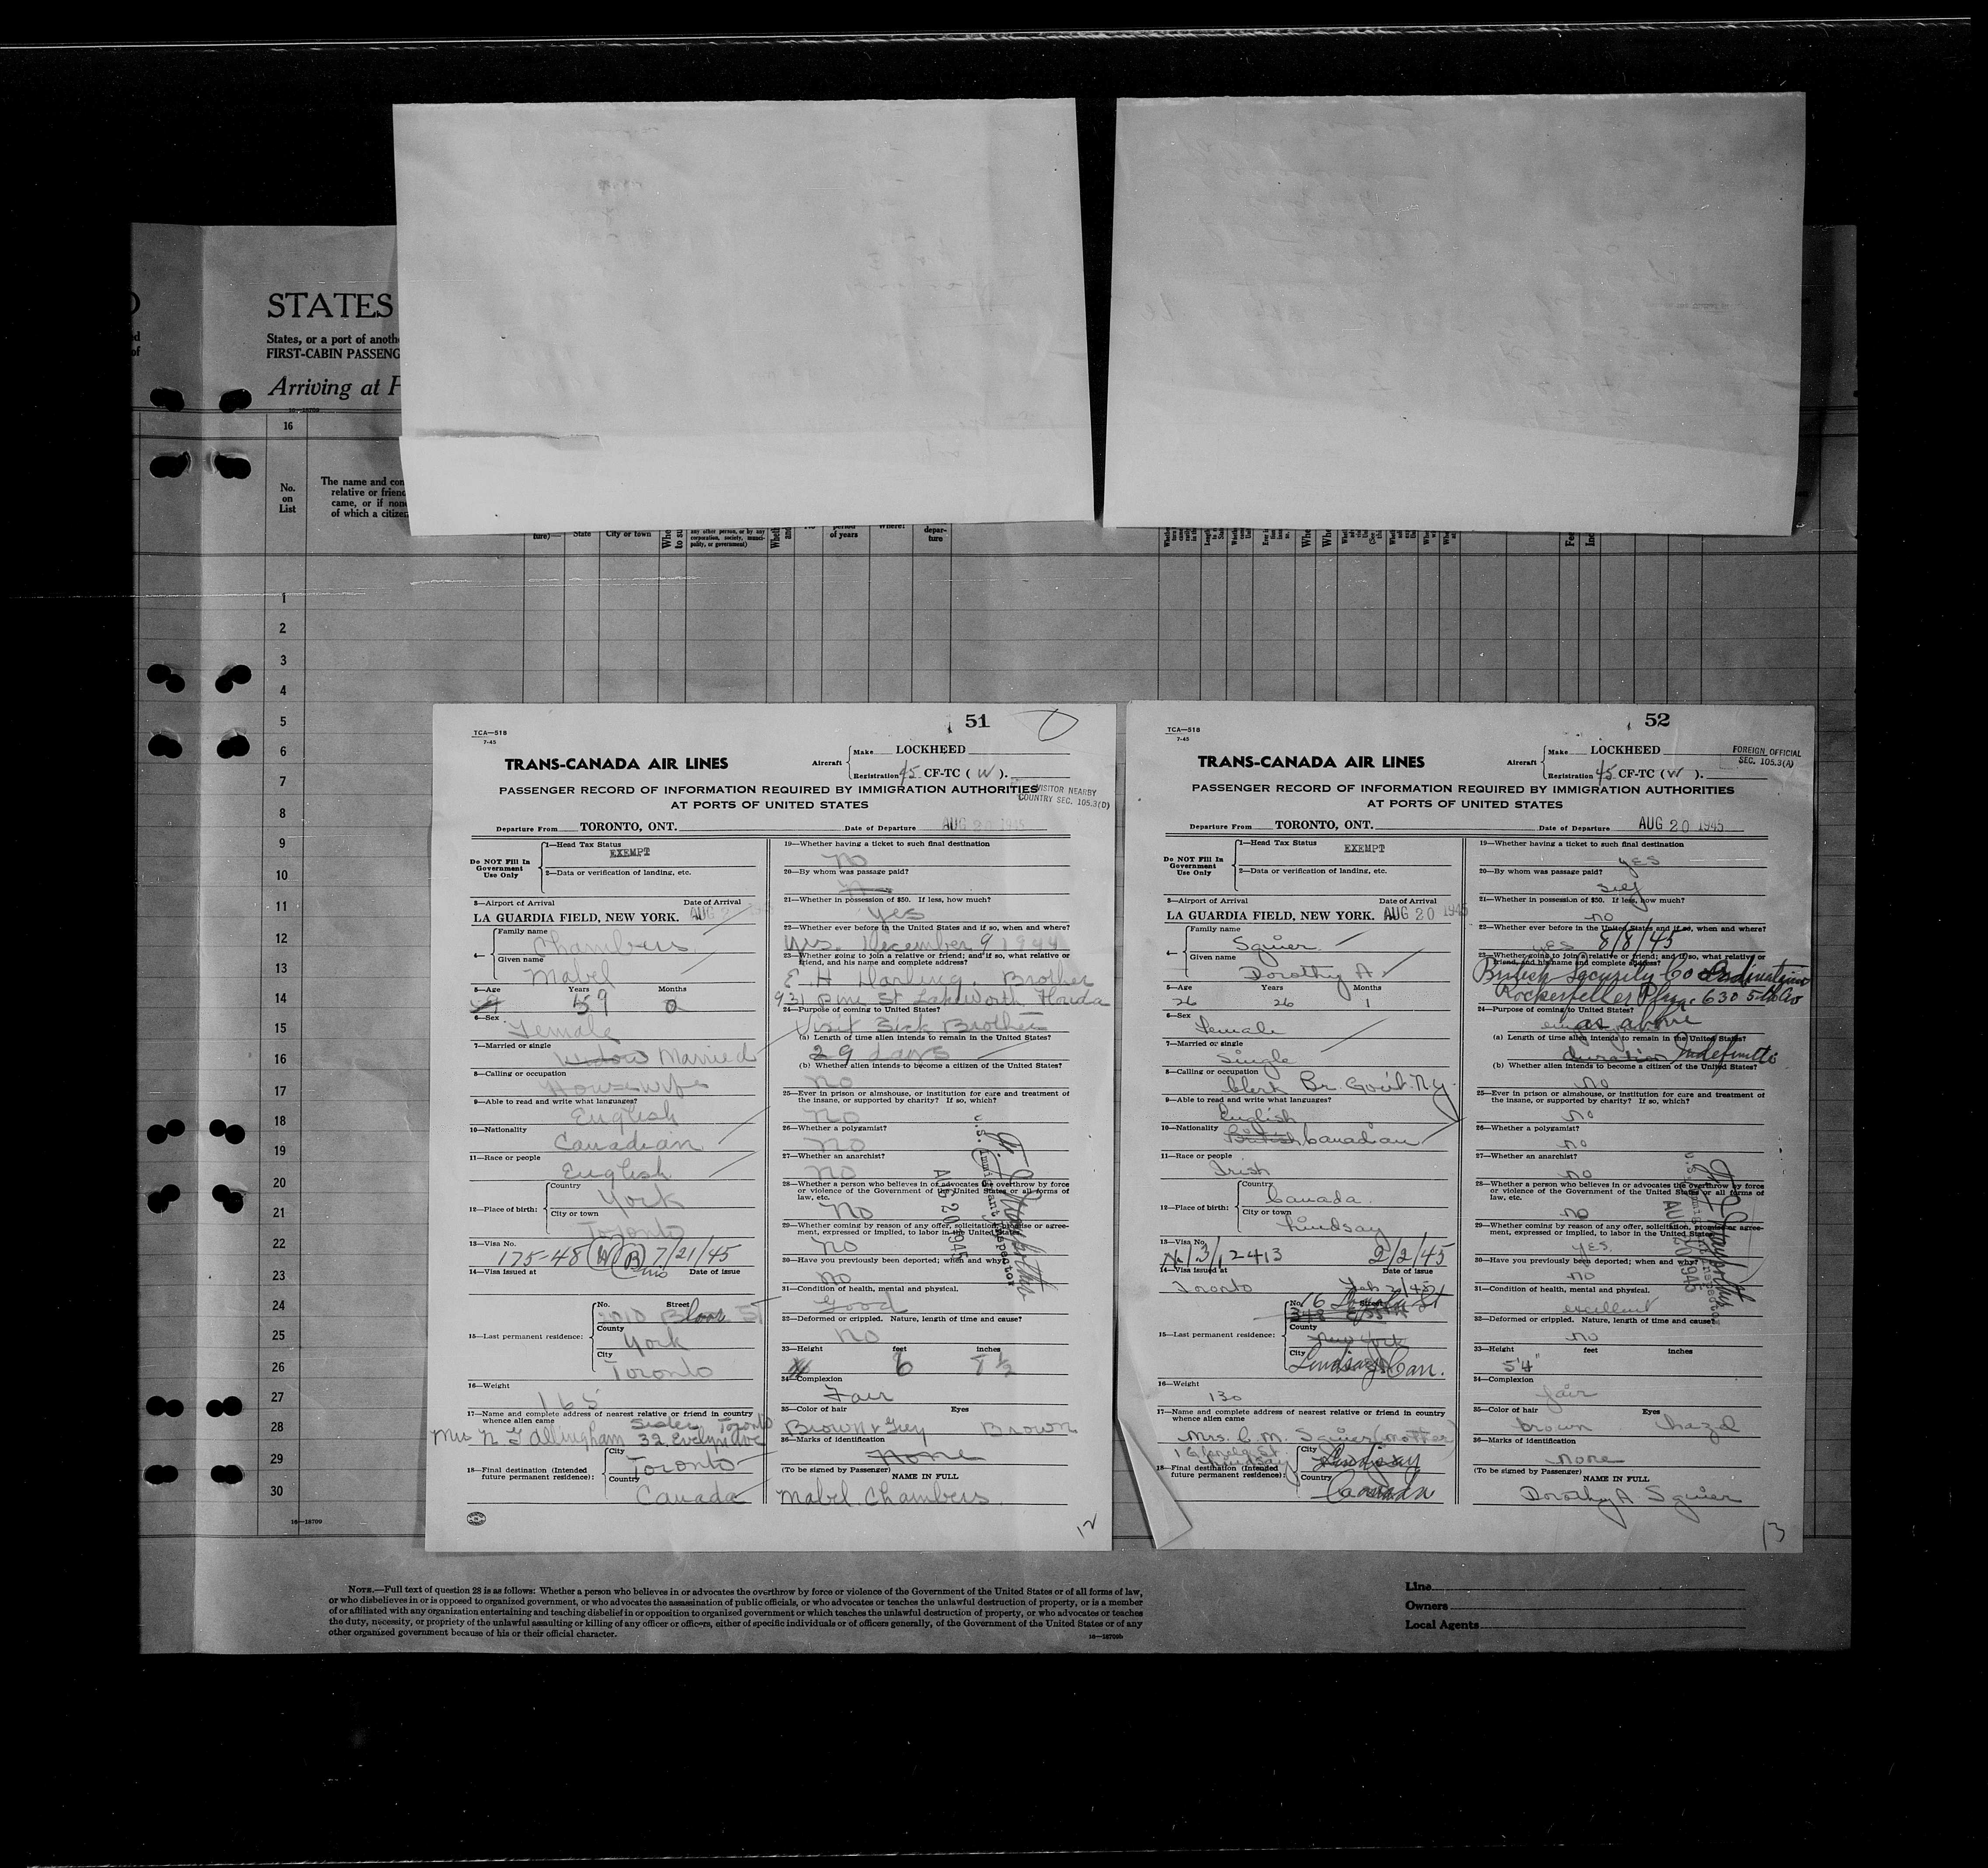 STATES
States, or a port of anoth
FIRST-CABIN PASSENG
Arriving at
16—18709
16
No.
on
List
The name and con
relative or friend
came, or if none
of which a citizen
ture)—
State
City or town
any other person, or by any
corporation, society, munici-
pality, or government)
period
of years
Where?
depar-
ture
1
2
3
4
5
6
7
8
9
10
11
12
13
14
15
16
17
18
19
20
21
22
23
24
25
26
27
28
29
30
16—18709
51
TCA—518
7-45
TRANS-CANADA AIR LINES
Aircraft
Make LOCKHEED
Registration 45 CF-TC ( W ).
PASSENGER RECORD OF INFORMATION REQUIRED BY IMMIGRATION AUTHORITIES
AT PORTS OF UNITED STATES
VISITOR NEARBY
COUNTRY SEC. 105.3(D)
Departure From TORONTO, ONT. Date of Departure AUG 20 1945
Do NOT Fill In
Government
Use Only
1—Head Tax Status
EXEMPT
2—Data or verification of landing, etc.
3—Airport of Arrival Date of Arrival
LA GUARDIA FIELD, NEW YORK. AUG 2
4—
Family name
Chambers
Given name
Mabel
5—Age Years Months
59 0
6—Sex
Female
7—Married or single
Widow Married
8—Calling or occupation
Housewife
9—Able to read and write what languages?
English
10—Nationality
Canadian
11—Race or people
English
12—Place of birth:
Country
York
City or town
Toronto
13—Visa No.
175-48 7/21/45
14—Visa issued at Date of issue
15—Last permanent residence:
No. Street
Bloor St
County
York
City
Toronto
16—Weight
165
17—Name and complete address of nearest relative or friend in country
whence alien came
Sister Toronto
Mrs N G Allingham 32 Evelyn Ave
18—Final destination (Intended
future permanent residence):
City
Toronto
Country
Canada
19—Whether having a ticket to such final destination
No
20—By whom was passage paid?
21—Whether in possession of $50. If less, how much?
Yes
22—Whether ever before in the United States and if so, when and where?
Yes. December 9 1944
23—Whether going to join a relative or friend; and if so, what relative or
friend, and his name and complete address?
E. H Darling. Brother
931 Pine St Lake Worth Florida
24—Purpose of coming to United States?
Visit Sick Brother
(a) Length of time alien intends to remain in the United States?
29 days
(b) Whether alien intends to become a citizen of the United States?
No
25—Ever in prison or almshouse, or institution for care and treatment of
the insane, or supported by charity? If so, which?
No
26—Whether a polygamist?
No
27—Whether an anarchist?
No
28—Whether a person who believes in or advocates the overthrow by force
or violence of the Government of the United States or all forms of
law, etc.
No
29—Whether coming by reason of any offer, solicitation, promise or agree-
ment, expressed or implied, to labor in the United States
No
30—Have you previously been deported; when and why?
No
31—Condition of health, mental and physical.
Good
32—Deformed or crippled. Nature, length of time and cause?
No
33—Height feet inches
34—Complexion
Fair
35—Color of hair Eyes
Brown & Grey Brown
36—Marks of identification
None
(To be signed by Passenger) NAME IN FULL
Mabel Chambers
AUG 20 1945
U.S. Immigrant Inspector
12
52
TCA—518
7-45
TRANS-CANADA AIR LINES
Aircraft
Make LOCKHEED
Registration 45 CF-TC ( W ).
FOREIGN OFFICIAL
SEC. 105.3(A)
PASSENGER RECORD OF INFORMATION REQUIRED BY IMMIGRATION AUTHORITIES
AT PORTS OF UNITED STATES
Departure From TORONTO, ONT. Date of Departure AUG 20 1945
Do NOT Fill In
Government
Use Only
1—Head Tax Status
EXEMPT
2—Data or verification of landing, etc.
3—Airport of Arrival Date of Arrival
LA GUARDIA FIELD, NEW YORK. AUG 20 1945
4—
Family name
Squier
Given name
Dorothy A.
5—Age Years Months
26 26 1
6—Sex
Female
7—Married or single
Single
8—Calling or occupation
Clerk Br. Gov't. N.Y.
9—Able to read and write what languages?
English
10—Nationality
British Canadian
11—Race or people
Irish
12—Place of birth:
Country
Canada
City or town
Lindsay
13—Visa No.
2413 2/2/45
14—Visa issued at Date of issue
Toronto Feb 2/45
15—Last permanent residence:
No. Street
16
County
New York
City
Lindsay Can.
16—Weight
130
17—Name and complete address of nearest relative or friend in country
whence alien came
Mrs. C. M. Squier (mother)
Glenelg St.
Lindsay
18—Final destination (Intended
future permanent residence):
City
Lindsay
Country
Canada
19—Whether having a ticket to such final destination
yes
20—By whom was passage paid?
self
21—Whether in possession of $50. If less, how much?
no
22—Whether ever before in the United States and if so, when and where?
yes 8/8/45
23—Whether going to join a relative or friend; and if so, what relative or
friend, and his name and complete address?
British Security Co Ordination
Rockerfeller Plaza 630 5th Av
24—Purpose of coming to United States?
as above
(a) Length of time alien intends to remain in the United States?
duration Indefinite
(b) Whether alien intends to become a citizen of the United States?
no
25—Ever in prison or almshouse, or institution for care and treatment of
the insane, or supported by charity? If so, which?
no
26—Whether a polygamist?
no
27—Whether an anarchist?
no
28—Whether a person who believes in or advocates the overthrow by force
or violence of the Government of the United States or all forms of
law, etc.
no
29—Whether coming by reason of any offer, solicitation, promise or agree-
ment, expressed or implied, to labor in the United States?
yes
30—Have you previously been deported; when and why?
no
31—Condition of health, mental and physical.
excellent
32—Deformed or crippled. Nature, length of time and cause?
no
33—Height feet inches
5'4"
34—Complexion
fair
35—Color of hair Eyes
brown hazel
36—Marks of identification
none
(To be signed by Passenger) NAME IN FULL
Dorothy A. Squier
13
NOTE.—Full text of question 28 is as follows: Whether a person who believes in or advocates the overthrow by force or violence of the Government of the United States or of all forms of law,
or who disbelieves in or is opposed to organized government, or who advocates the assassination of public officials, or who advocates or teaches the unlawful destruction of property, or is a member
of or affiliated with any organization entertaining and teaching disbelief in or opposition to organized government or which teaches the unlawful destruction of property, or who advocates or teaches
the duty, necessity, or propriety of the unlawful assaulting or killing of any officer or officers, either of specific individuals or of officers generally, of the Government of the United States or of any
other organized government because of his or their official character.
16—18709b
Line
Owners
Local Agents